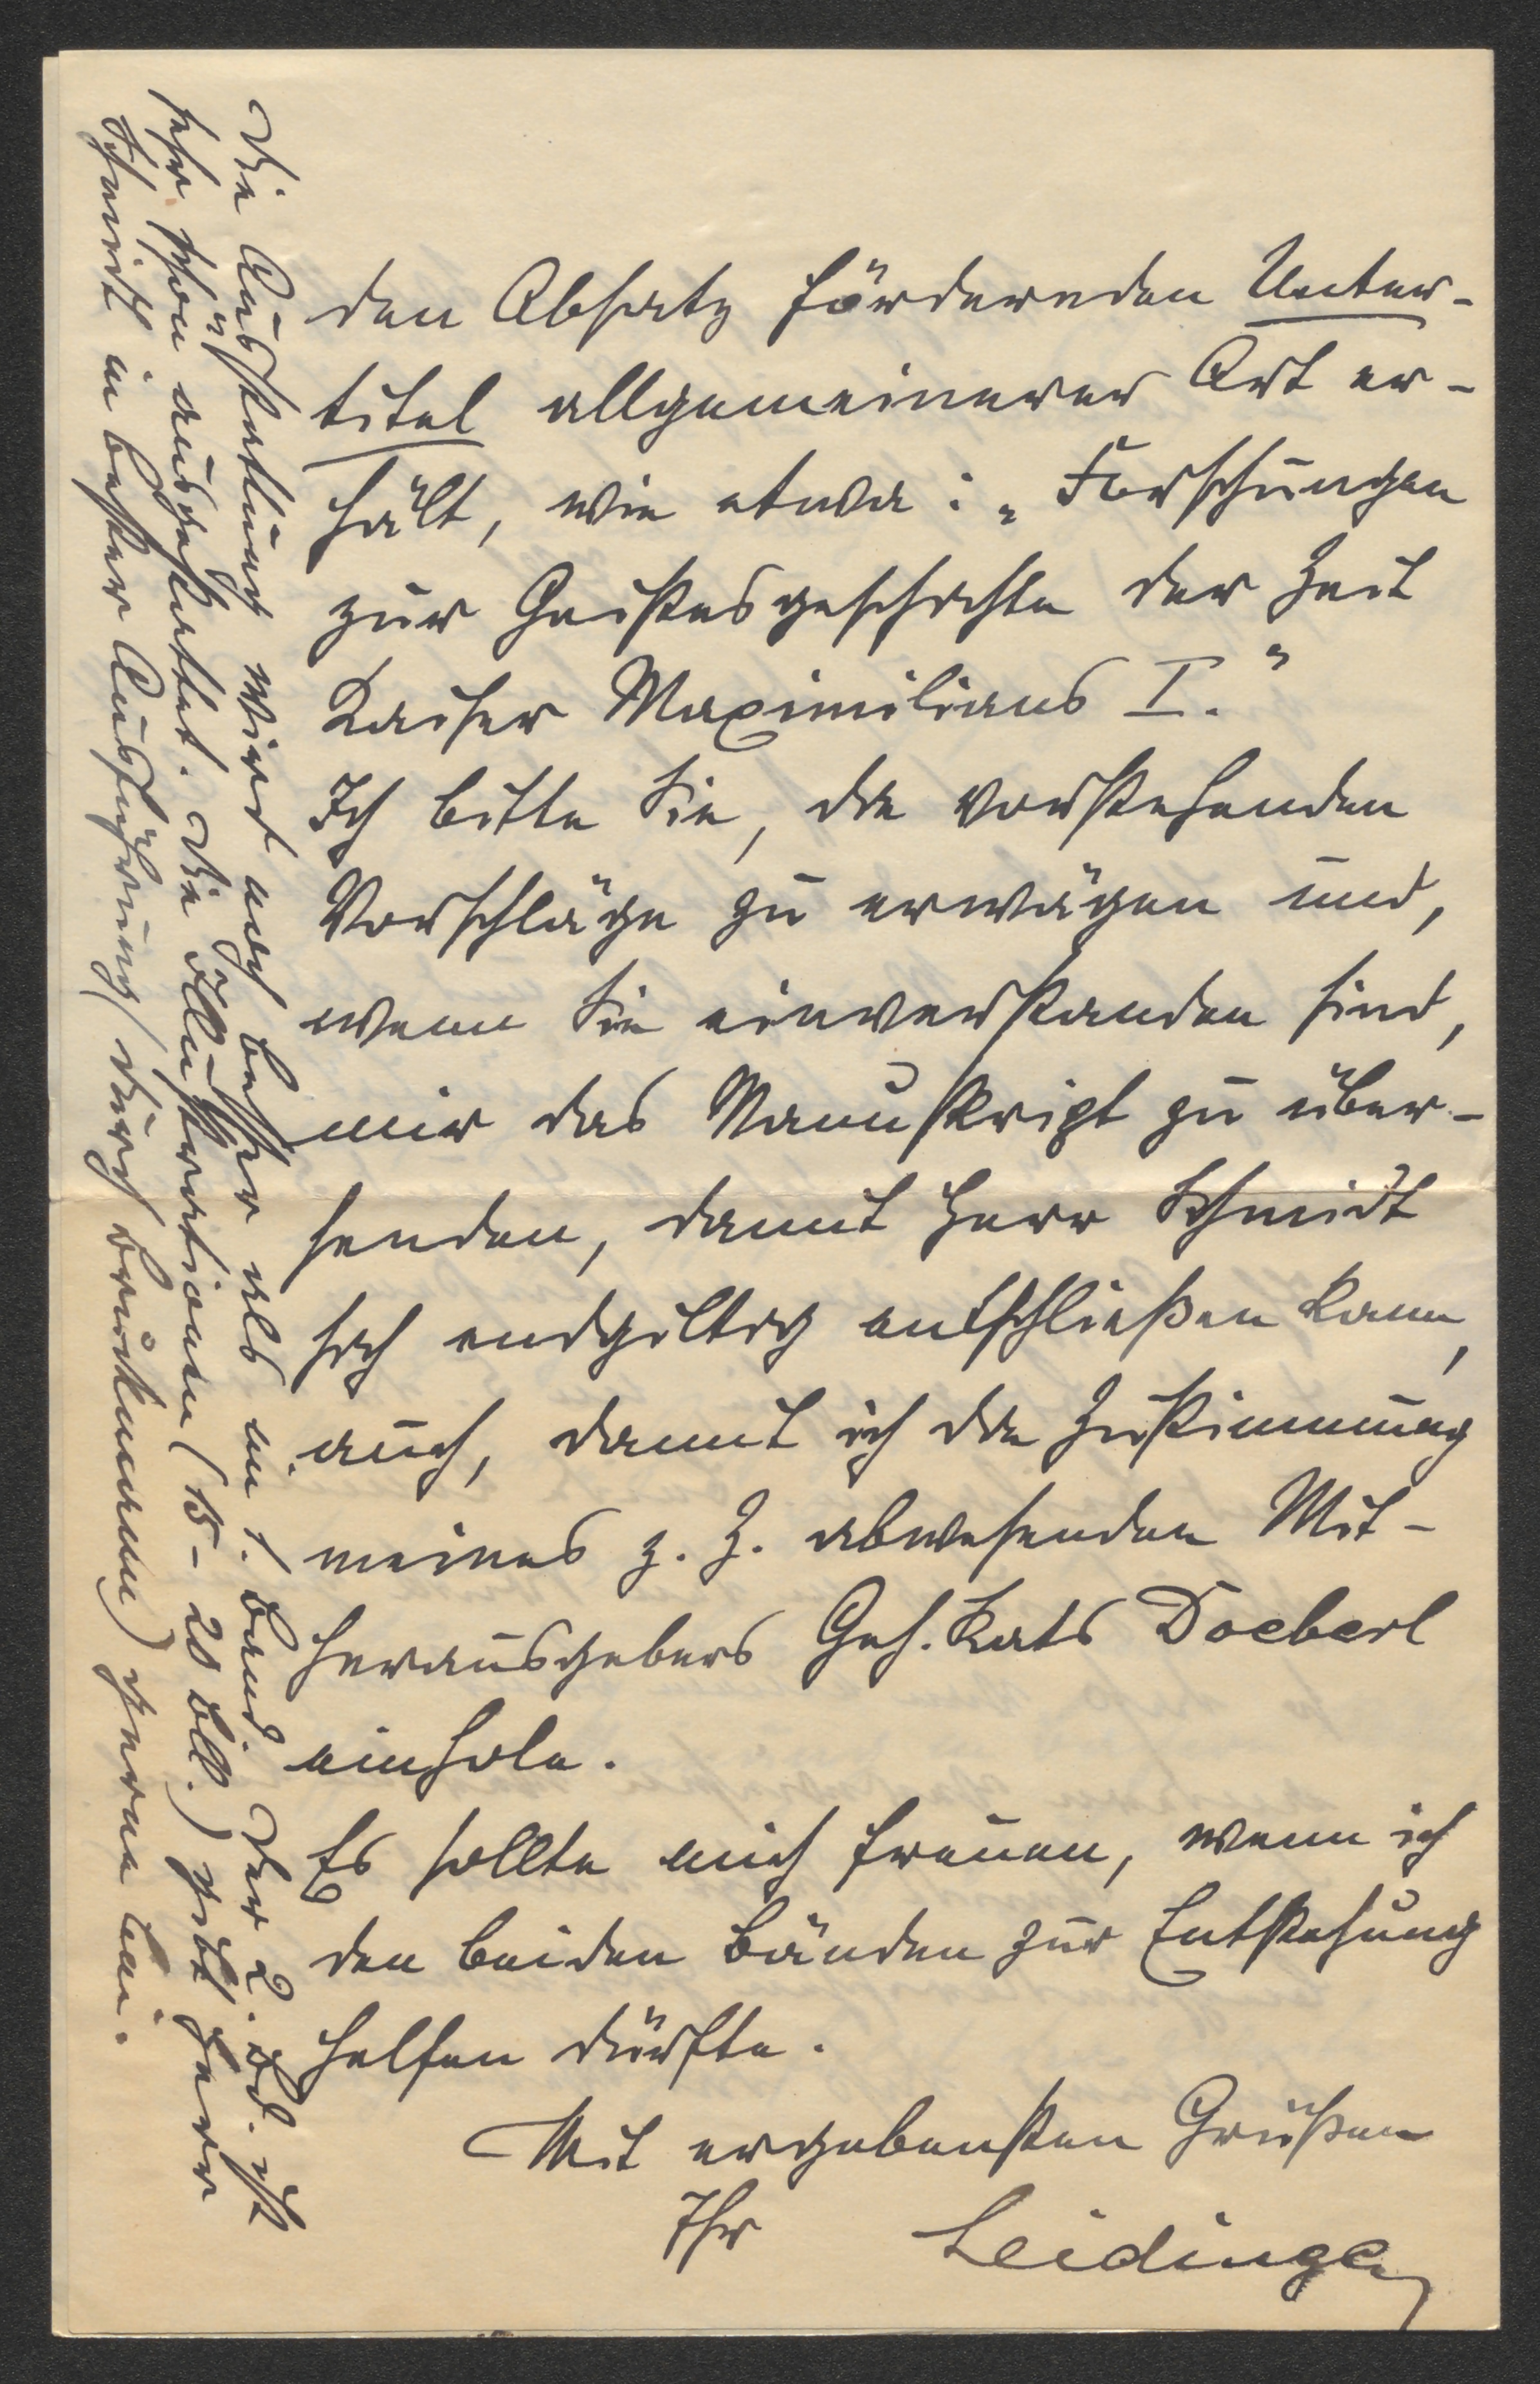 den Absatz fördernden Unter-
titel allgemeinerer Art er-
hält, wie etwa: „Forschungen
zur Geistesgeschichte der Zeit
Kaiser Maximilians I.“
Ich bitte Sie, die vorstehenden
Vorschläge zu erwägen und,
wenn Sie einverstanden sind,
mir das Manuskript zu über-
senden, damit Herr Schmidt
sich endgiltig entschließen kann,
auch, damit ich die Zustimmung
meines z. Z. abwesenden Mit-
herausgebers Geh. Rats Doeberl
einhole.
Es sollte mich freuen, wenn ich
den beiden Bänden zur Entstehung
helfen dürfte.
Mit ergebensten Grüßen
Ihr Leidinger
Die Ausstattung wird noch besser als am 1. Band. Der 2. Bd. ist
sehr schön ausgestattet. Die Illustrationen (15-20 Bll.) gibt Herr
Schmidt in bester Ausführung (durch Bruckmann) gerne bei.